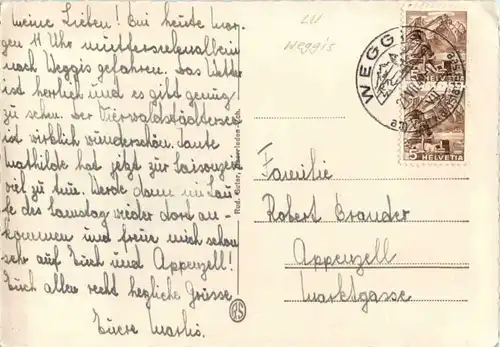 Meine Lieben! Bin heute mor-
gen 11 Uhr mutterseelenallein
nach Weggis gefahren. Das Wetter
ist herlich und es gibt genug
zu sehen. Der Vierwaldstättersee
ist wirklich wunderschön. Tante
Mathilde hat jetzt zur Saisonzeit
viel zu tun. Werde dann im Lau-
fe des Samstag wieder dort an-
kommen und freue mich schon
sehr auf Euch und Appenzell!
Euch allen recht herzliche Grüsse
Euere
LU
Weggis
WEGGIS
5 HELVETIA
5 HELVETIA
Familie
Robert Brander
Appenzell
Marktgasse
RS